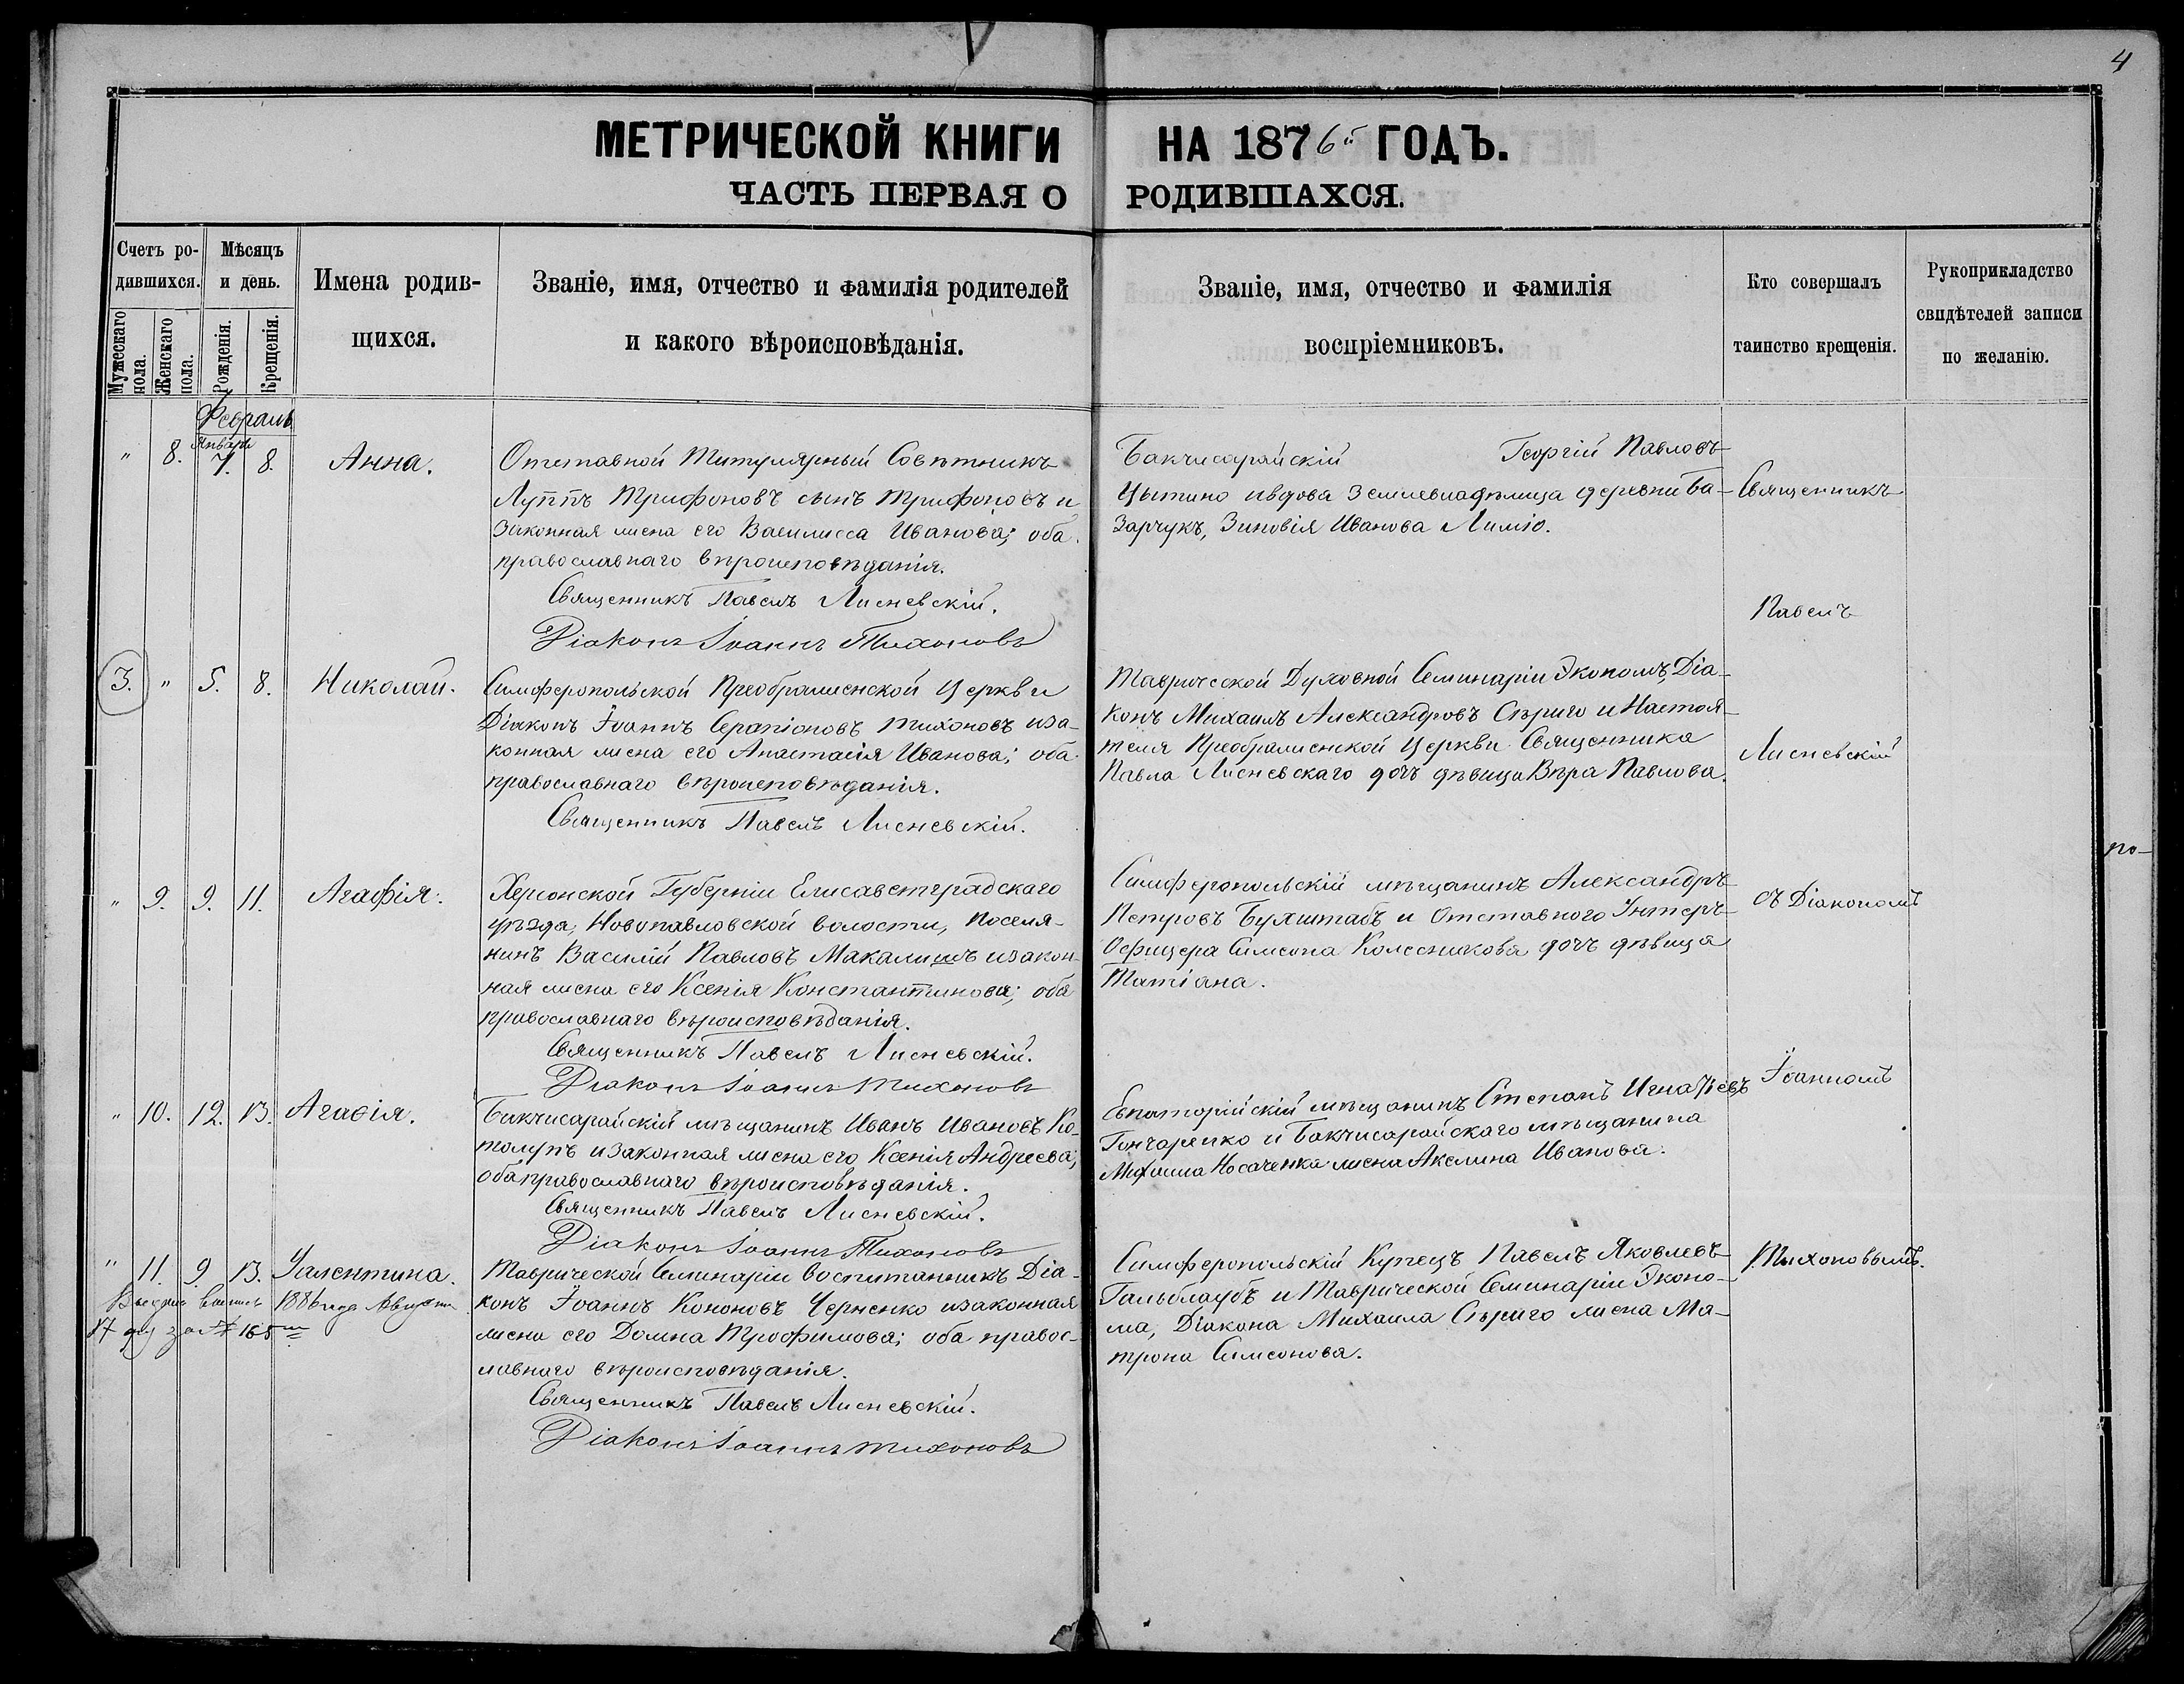 4
МЕТРИЧЕСКОЙ КНИГИ НА 1876й ГОДЪ.
ЧАСТЬ ПЕРВАЯ О РОДИВШАХСЯ.
Счетъ ро-
дившихся.
Мужескаго пола.
Женскаго пола.
Мѣсяцъ
и день.
Рожденія.
Крещенія.
Имена родив-
щихся.
Званіе, имя, отчество и фамилія родителей
и какого вѣроисповѣданія.
Званіе, имя, отчество и фамилія
воспріемниковъ.
Кто совершалъ
таинство крещенія.
Рукоприкладство
свидѣтелей записи
по желанію.
Февраль
Январь
" 8. 7. 8. Анна.
Отставной Титулярный Совѣтникъ
Луппъ Трифоновъ сынъ Трифоновъ и
законная жена его Василисса Иванова; оба
православнаго вѣроисповѣданія.
Священникъ Павелъ Лисневскій.
Діаконъ Іоаннъ Тихоновъ
Бакчисарайскій Георгій Павловъ
Цытино и вдова Землевладѣлица деревни Ба-
зарчукъ, Зиновія Иванова
Священникъ
Павелъ
3. " 5. 8. Николай.
Симферопольской Преображенской Церкви
Діаконъ Іоаннъ Серапіоновъ Тихоновъ и за-
конная жена его Анастасія Иванова; оба
православнаго вѣроисповѣданія.
Священникъ Павелъ Лисневскій.
Таврической Духовной Семинаріи Экономъ, Діа-
конъ Михаилъ Александровъ Сѣриго и Настоя-
теля Преображенской Церкви Священника
Павла Лисневскаго дочь дѣвица Вѣра Павлова.
Лисневскій
" 9. 9. 11. Агафія.
Херсонской Губерніи Елисаветградскаго
уѣзда, Новопавловской волости, поселя-
нинъ Василій Павловъ Макалишъ и закон-
ная жена его Ксенія Константинова; оба
православнаго вѣроисповѣданія.
Священникъ Павелъ Лисневскій.
Діаконъ Іоаннъ Тихоновъ
Симферопольскій мѣщанинъ Александръ
Петровъ Бухштабъ и Отставного Унтеръ-
Офицера Симеона Колесникова дочь дѣвица
Татіана.
съ Діакономъ
по-
" 10. 12. 13. Агаѳія.
Бакчисарайскій мѣщанинъ Иванъ Ивановъ Ко-
толупъ и законная жена его Ксенія Андреева;
оба православнаго вѣроисповѣданія.
Священникъ Павелъ Лисневскій.
Діаконъ Іоаннъ Тихоновъ
Евпаторійскій мѣщанинъ Степанъ Игнатіевъ
Гончаренко и Бакчисарайскаго мѣщанина
Михаила Носаченка жена Акелина Иванова.
Іоанномъ
" 11. 9. 13. Уалентина.
1886 года Августа
17 дня за № 165
Таврической Семинаріи воспитанникъ Діа-
конъ Іоаннъ Кононовъ Черненко и законная
жена его Домна Трофимова; оба правос-
лавнаго вѣроисповѣданія.
Священникъ Павелъ Лисневскій.
Діаконъ Іоаннъ Тихоновъ
Симферопольскій Купецъ Павелъ Яковлевъ
Гальблаубъ и Таврической Семинаріи Эконо-
ма, Діакона Михаила Сѣриго жена Ма-
трона Симеонова.
Тихоновымъ.